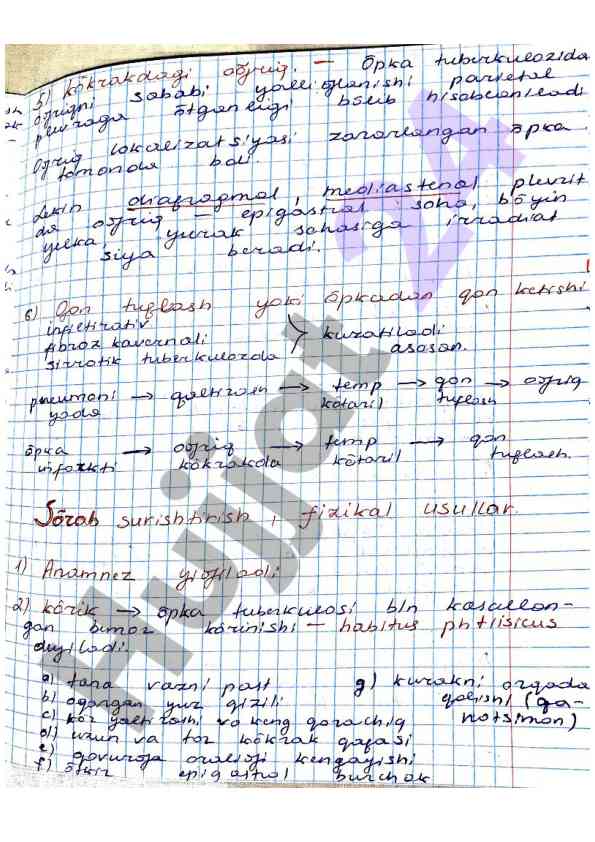 5) kõkrakdagi oğriq. — õpka tuberkulozida
oğriqni sababi yalliğlanishi parietal
plevraga õtganligi bõlib hisoblaniladi
Oğriq lokalizatsiyasi zararlangan õpka
tomonda bõl.
Lekin diafragmal, mediastenal plevrit
da oğriq — epigastral soha, bõyin
yelka, yurak sohasiga irradiat
siya beradi.
6) Qon tuflash yoki õpkadan qon ketishi
infiltrativ
fibroz kavernali
sirrotik tuberkulozda
kuzatiladi
asosan.
pnevmoni → qaltirash → temp → qon → oğriq
yada kõtaril tuflash
õpka → oğriq → temp → qon
infarkti kõkrakda kõtaril tuflash.
Sõrab surishtirish, fizikal usullar.
1) Anamnez yiğiladi
2) kõrik → õpka tuberkulosi bln kasallan-
gan bemor kõrinishi — habitus phtisicus
deyiladi.
a) tana vazni past
b) oqargan yuz qizili
c) kõz yaltirashi va keng qorachiq
d) uzun va tor kõkrak qafasi
e) qovurğa oraliği kengayishi
f) õtkir epigastral burchak
g) kurakni orqada
qolishi (qa-
notsimon)
Hujjat 24